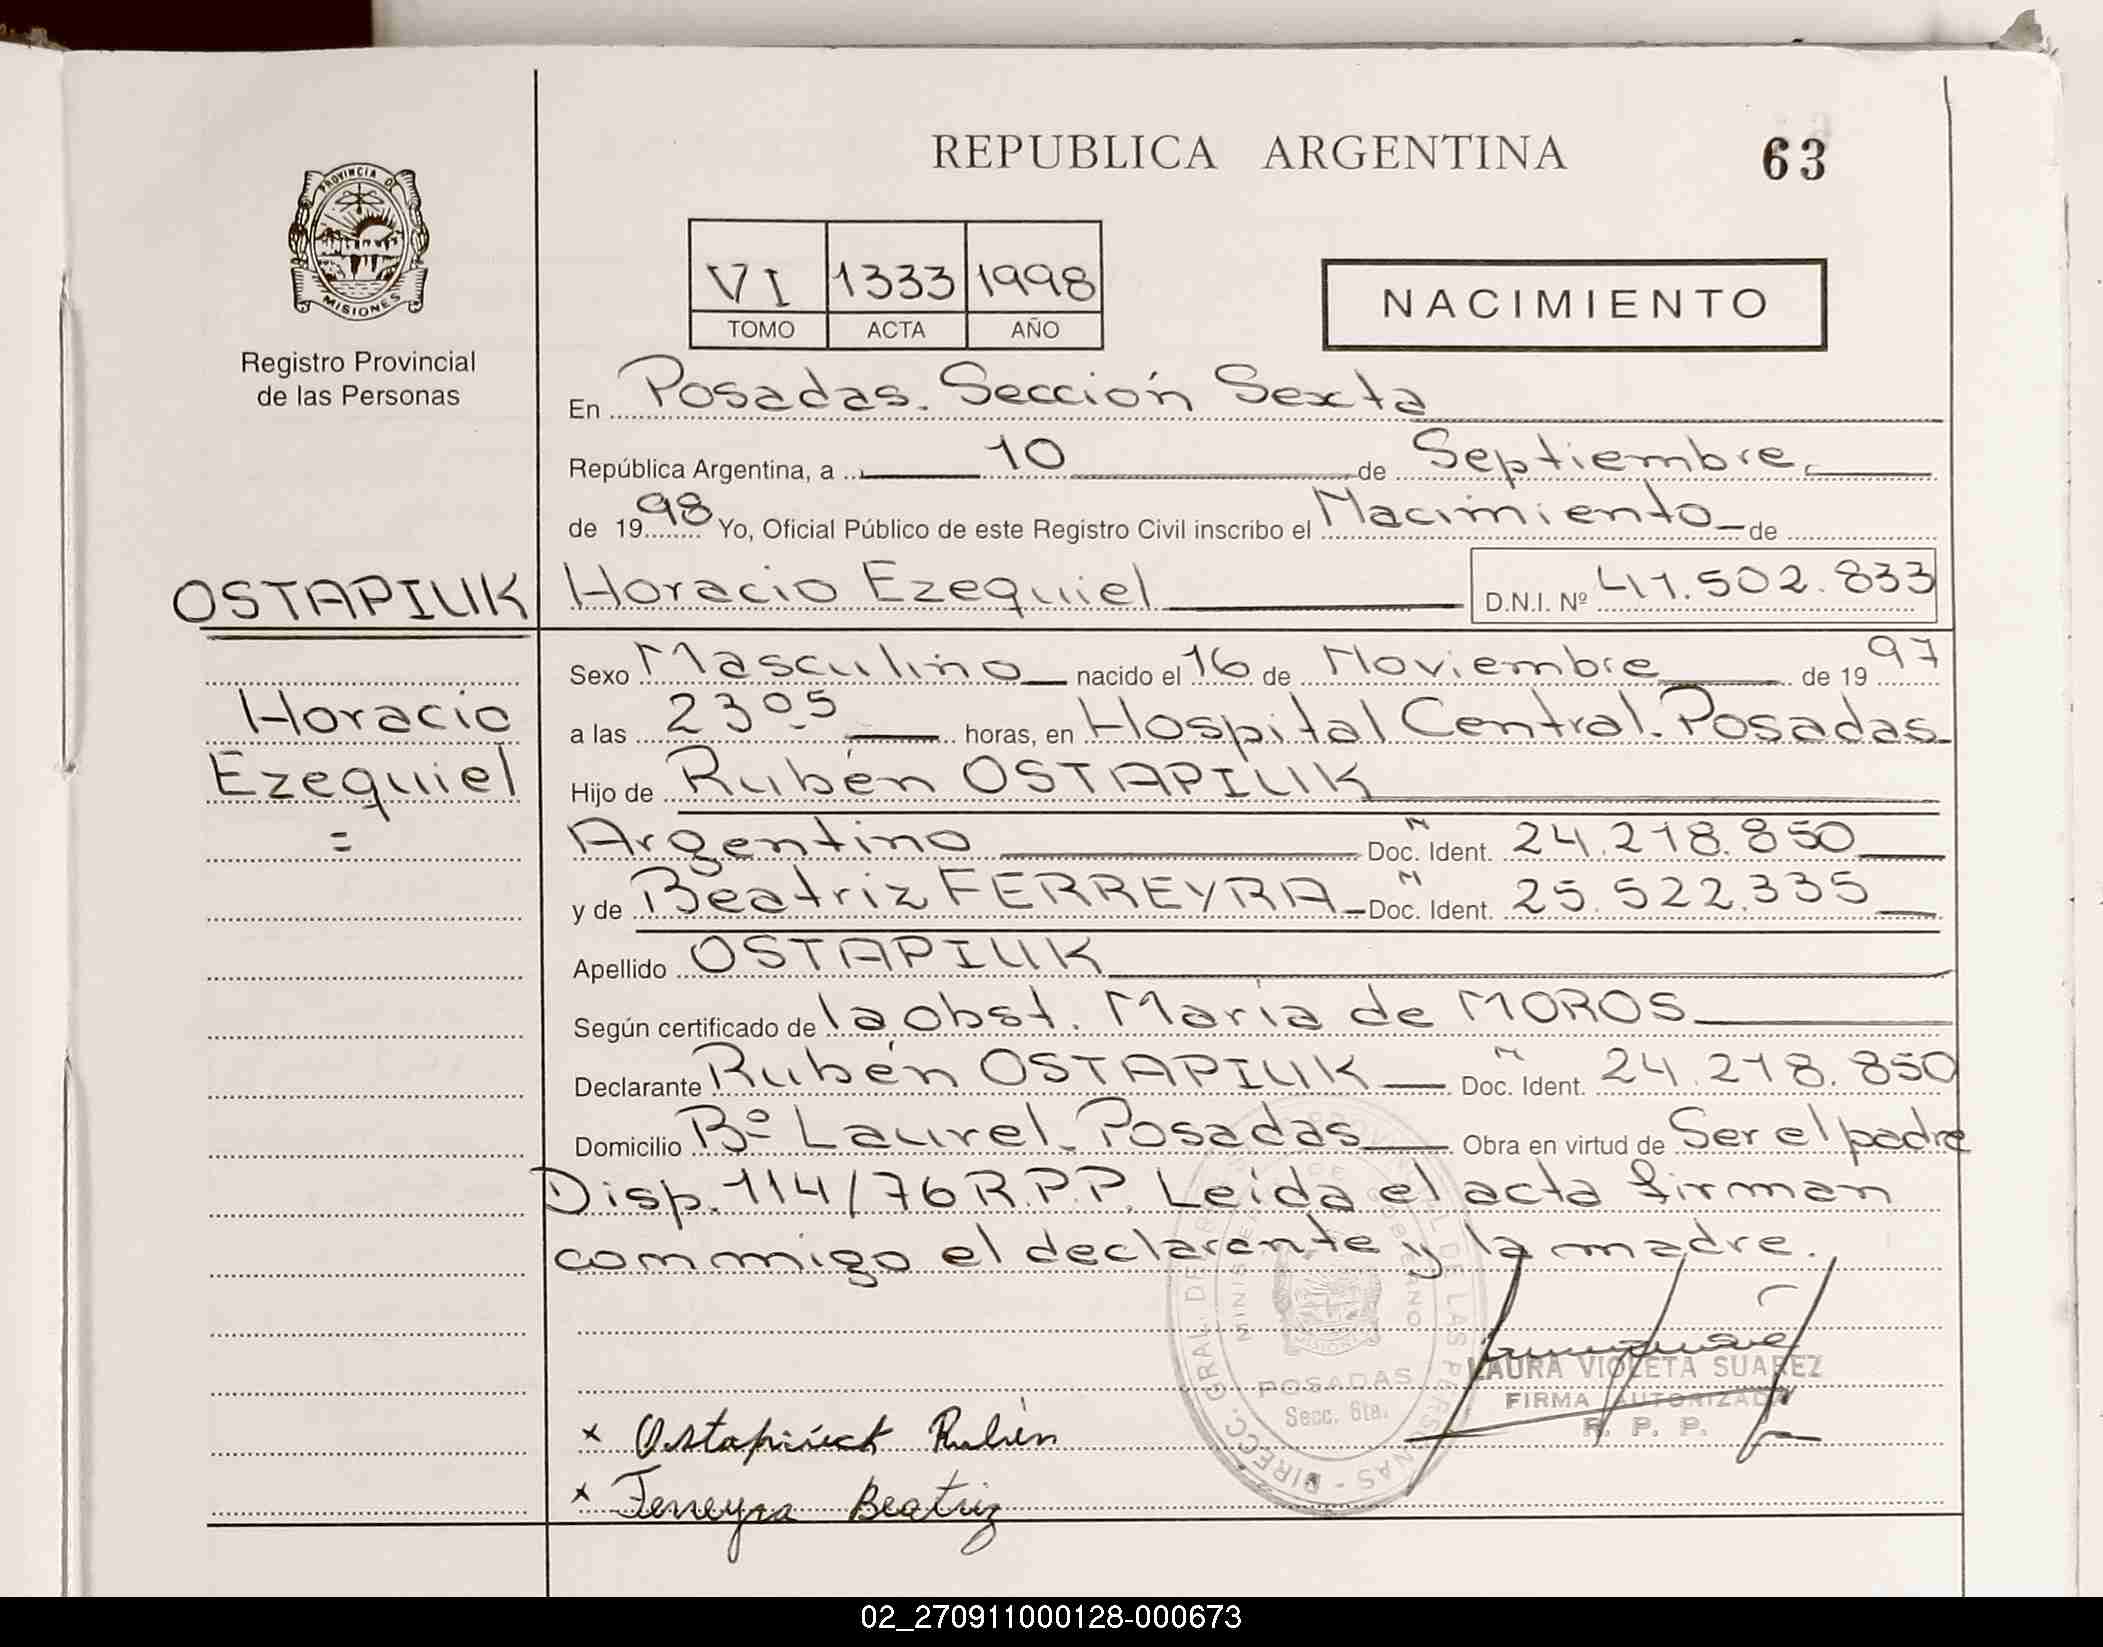 REPUBLICA ARGENTINA
63
PROVINCIA DE
MISIONES
Registro Provincial
de las Personas
VI 1333 1998
TOMO ACTA AÑO
NACIMIENTO
En Posadas. Sección Sexta
República Argentina, a 10 de Septiembre,
de 1998 Yo, Oficial Público de este Registro Civil inscribo el Nacimiento de
OSTAPIUK Horacio Ezequiel D.N.I. Nº 41.502.833
Sexo Masculino nacido el 16 de Noviembre de 1997
Horacio
a las 23 05 horas, en Hospital Central. Posadas
Ezequiel
Hijo de Rubén OSTAPIUK
=
Argentino Doc. Ident. 24.218.850
y de Beatriz FERREYRA Doc. Ident. 25.522.335
Apellido OSTAPIUK
Según certificado de la obst. María de MOROS
Declarante Rubén OSTAPIUK Doc. Ident. 24.218.850
Domicilio Bº Laurel. Posadas Obra en virtud de Ser el padre
Disp. 114/76 R.P.P. Leída el acta firman
conmigo el declarante y la madre.
DIRECC. GRAL. DE LAS PERSONAS
POSADAS
Secc. 6ta.
LAURA VIOLETA SUAREZ
FIRMA AUTORIZADA
R. P. P.
x Ostapiuck Rubén
x Ferreyra Beatriz
02_270911000128-000673